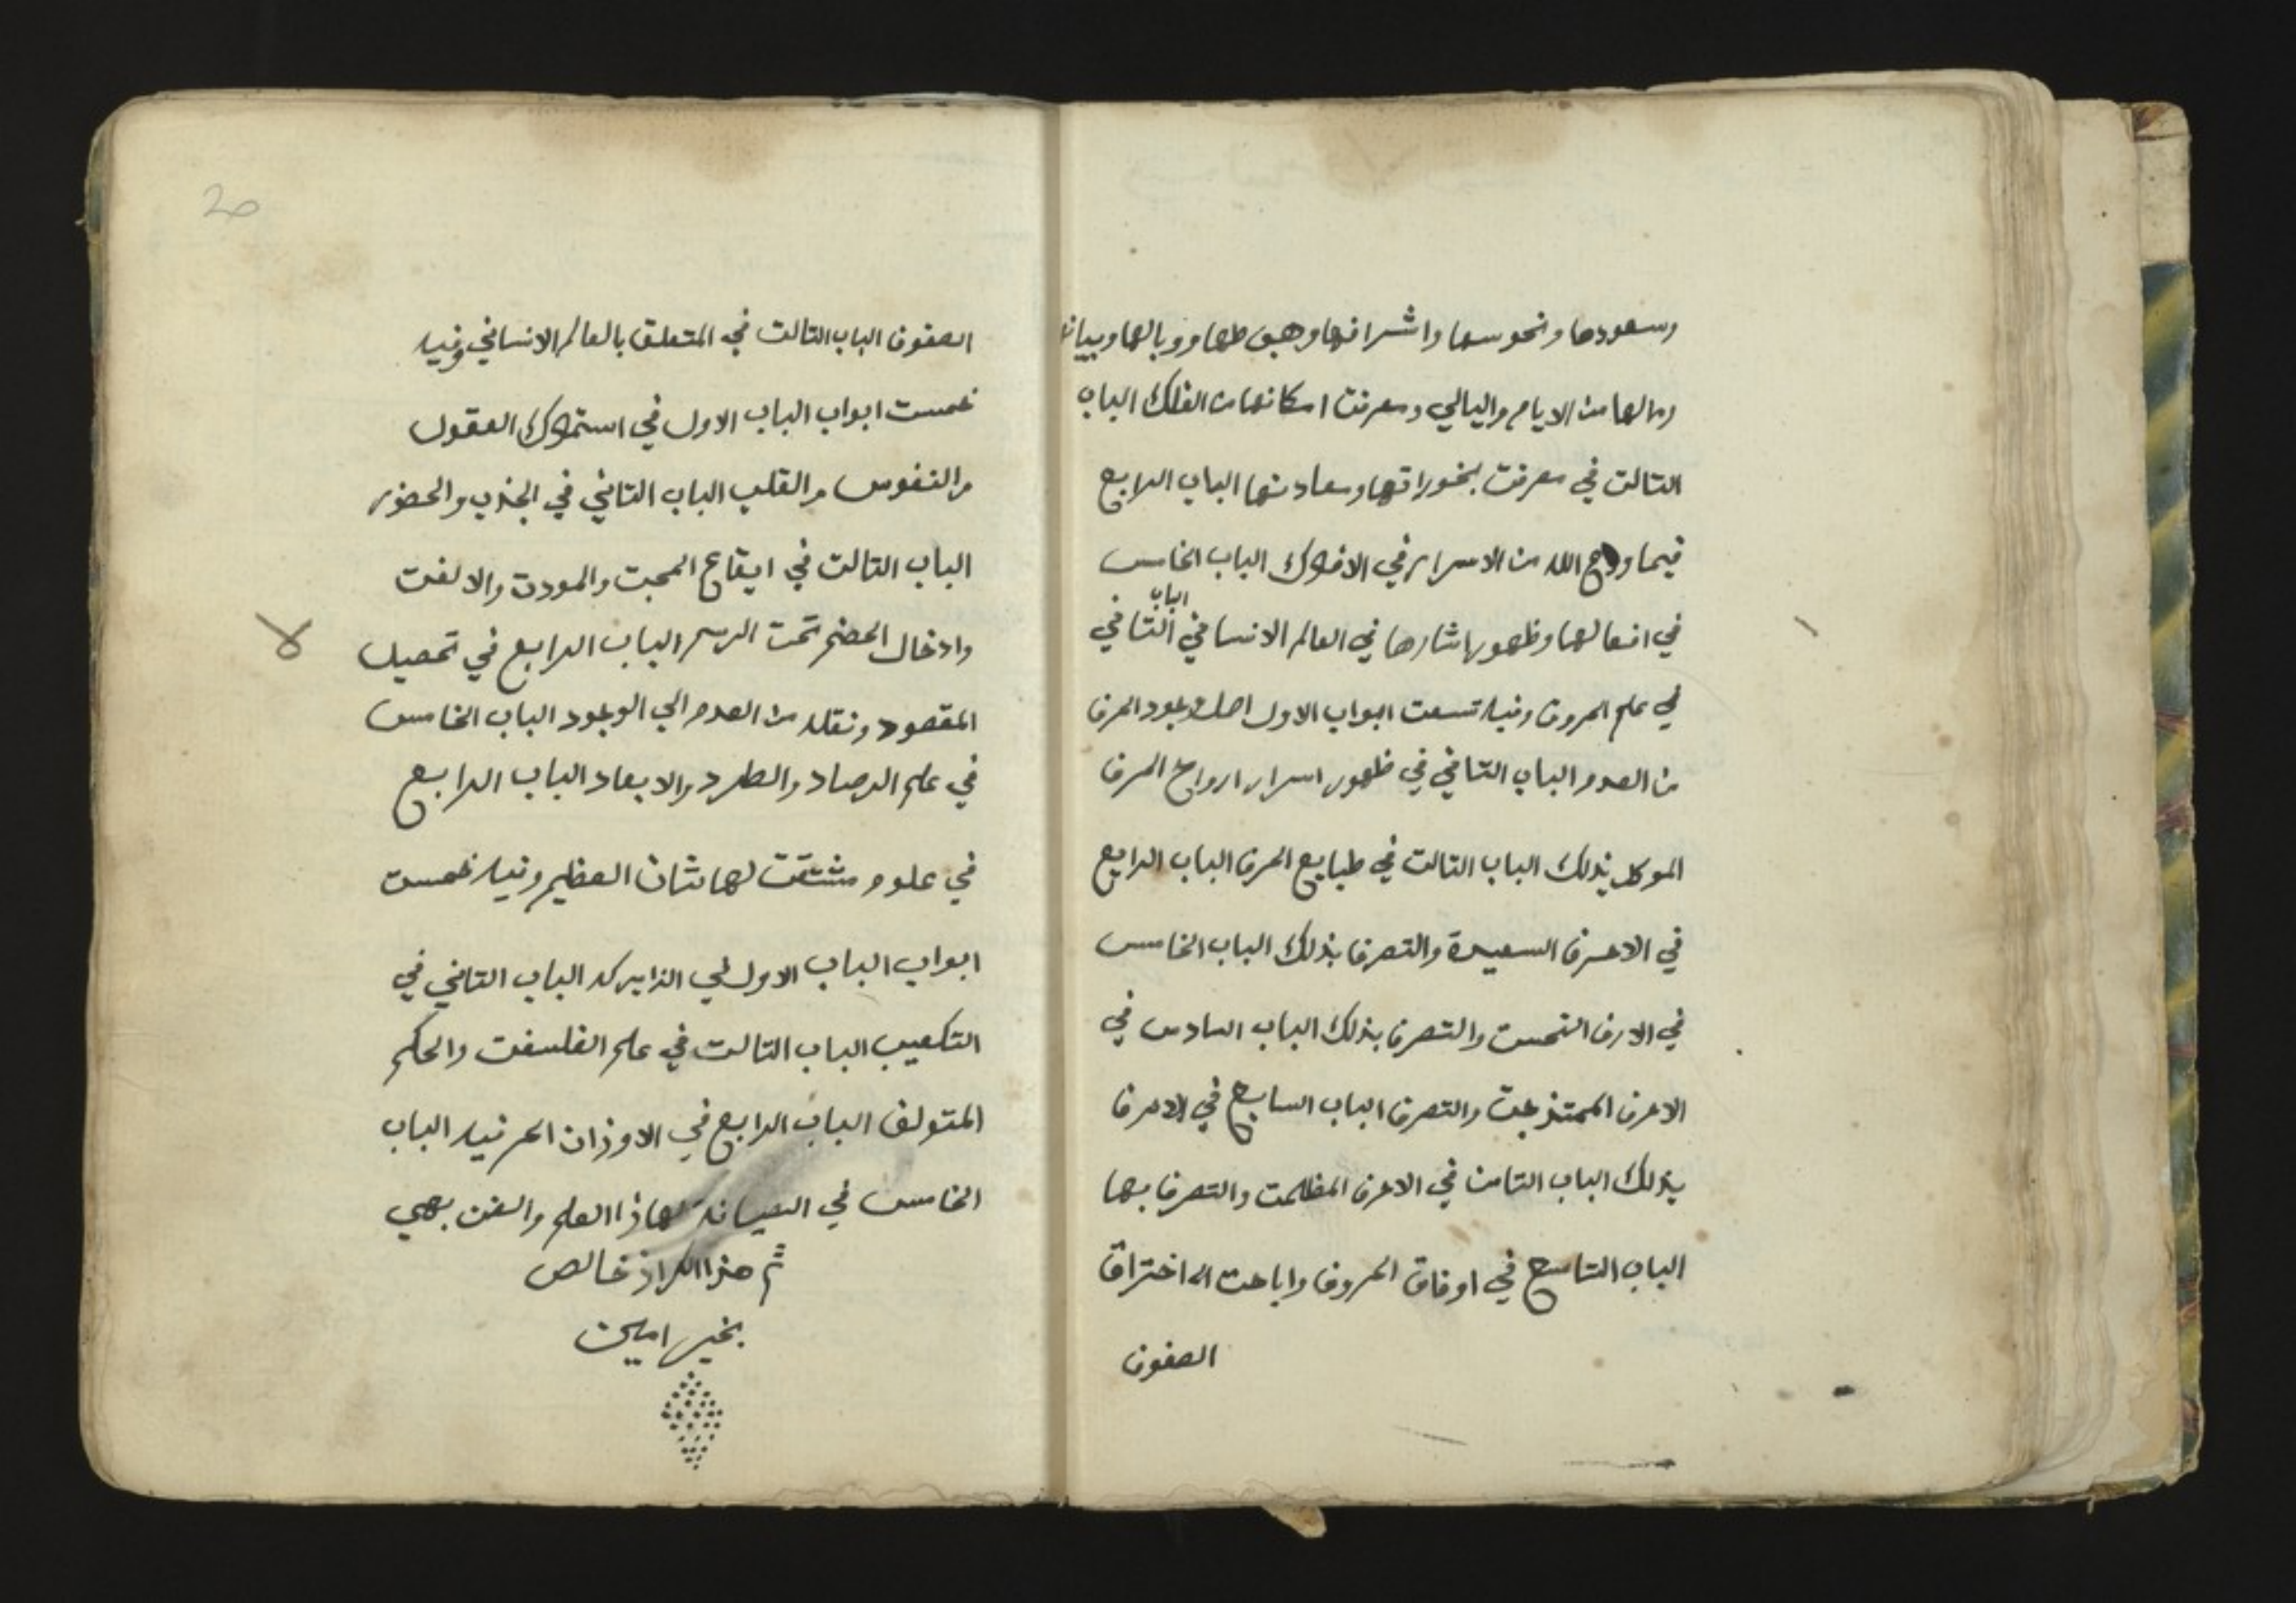 وسعودها ونحوسها واشرافها وهبوطها ووبالها وبيانها
ومالها من الايام واليالي ومعرفت امكانها من الفلك الباب
التالت في معرفت بخوراتها ومعادنها الباب الرابع
فيما ودع الله من الاسرار في الافلاك الباب الخامس
في افعالها وظهور اشارها في العالم الانساني الباب التاني
في علم الحروف وفيه تسعت ابواب الاول اصل وجود الحرف
من العدم الباب التاني في ظهور اسرار ارواح الحرف
الموكل بذلك الباب التالت في طبايع الحرف الباب الرابع
في الاحرف السعيدة والتصرف بذلك الباب الخامس
في الارف النحست والتصرف بذلك الباب السادس في
الاحرف الممتذجت والتصرف الباب السابع في الاحرف
بذلك الباب التامن في الاحرف المظلمت والتصرف بها
الباب التاسع في اوفاق الحروف واباحت اله اختراق
الصفوف
الصفوف الباب التالت في المتعلق بالعالم الانساني وفيه
خمست ابواب الباب الاول في استملاك العقول
والنفوس والقلب الباب التاني في الجذب والحضور
الباب التالت في ايقاع المحبت والمودت والالفت
وادخال الخضم تحت الرسم الباب الرابع في تحصيل
المقصود ونقله من العدم الي الوجود الباب الخامس
في علم الرصاد والطرد والابعاد الباب الرابع
في علوم مشتقت لها شان العظيم وفيه خمست
ابواب الباب الاول في الزايركه الباب التاني في
التكعيب الباب التالت في علم الفلسفت والحكم
المتولف الباب الرابع في الاوزان الحرفيه الباب
الخامس في الصيانة لهاذا العلم والفن بهي
تم هذا الكراذ خالص
بخير امين